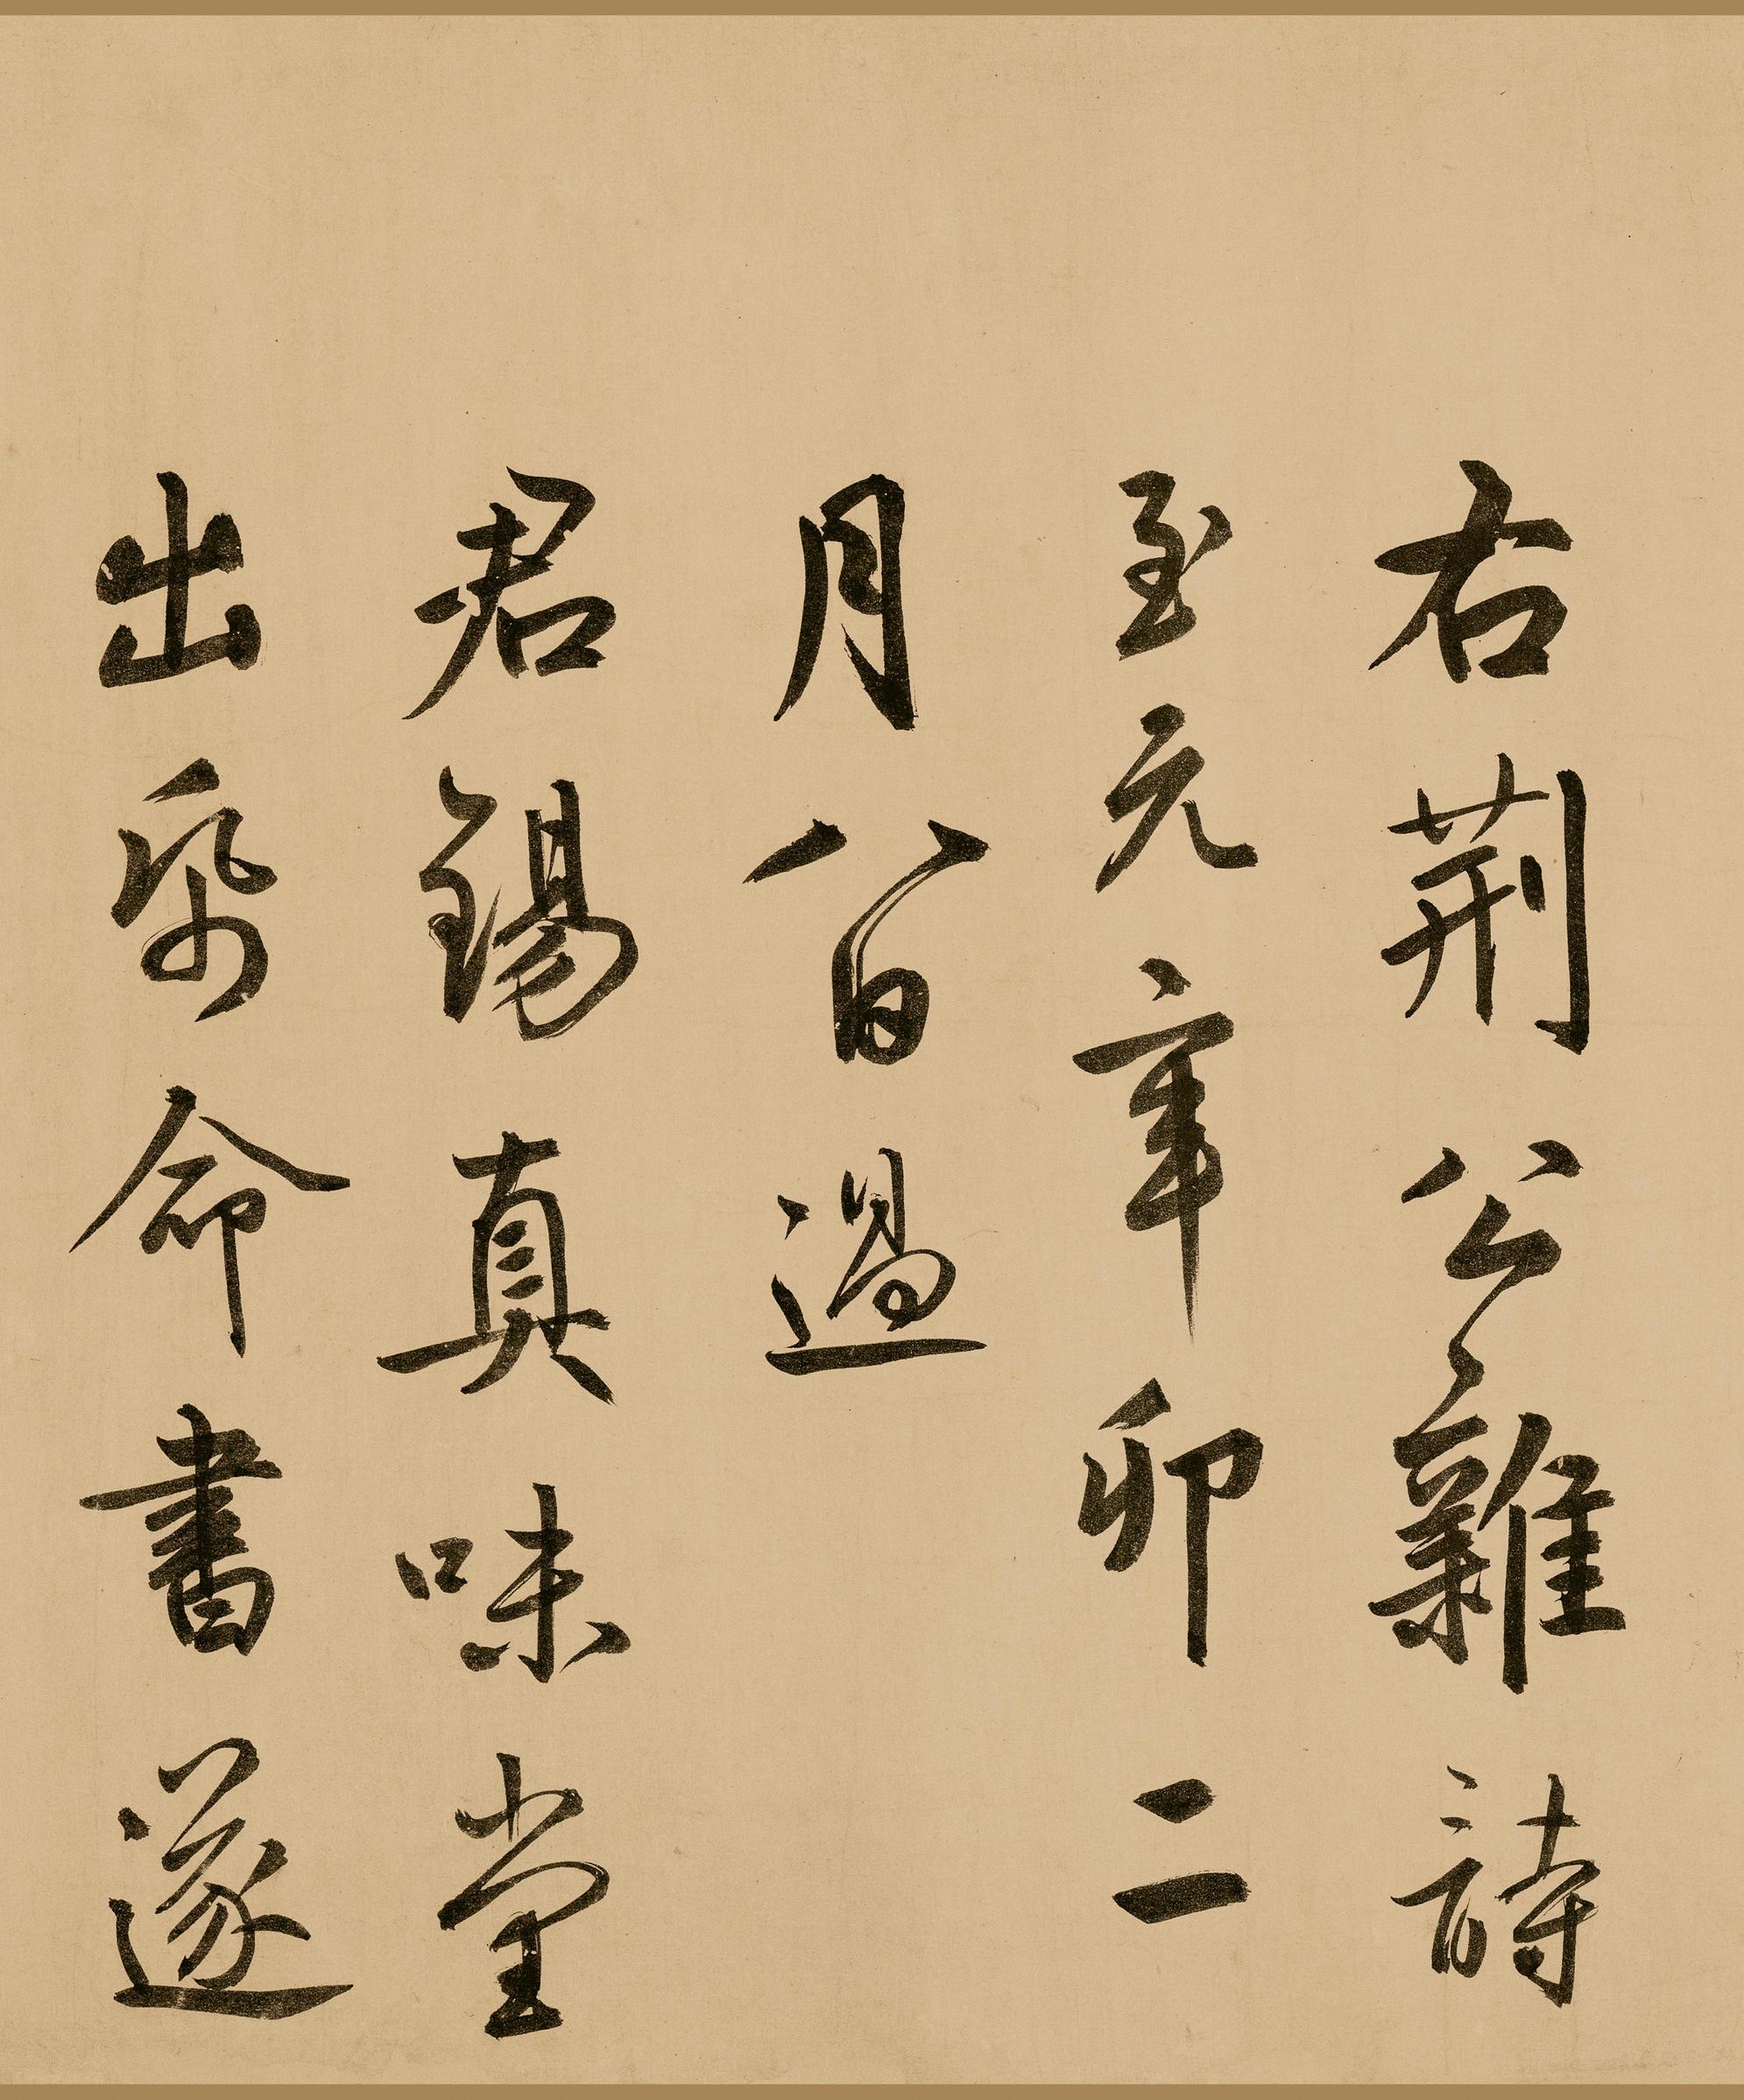 右荆公雜詩
至元辛卯二
月八日過
君錫真味堂
出帋命書遂